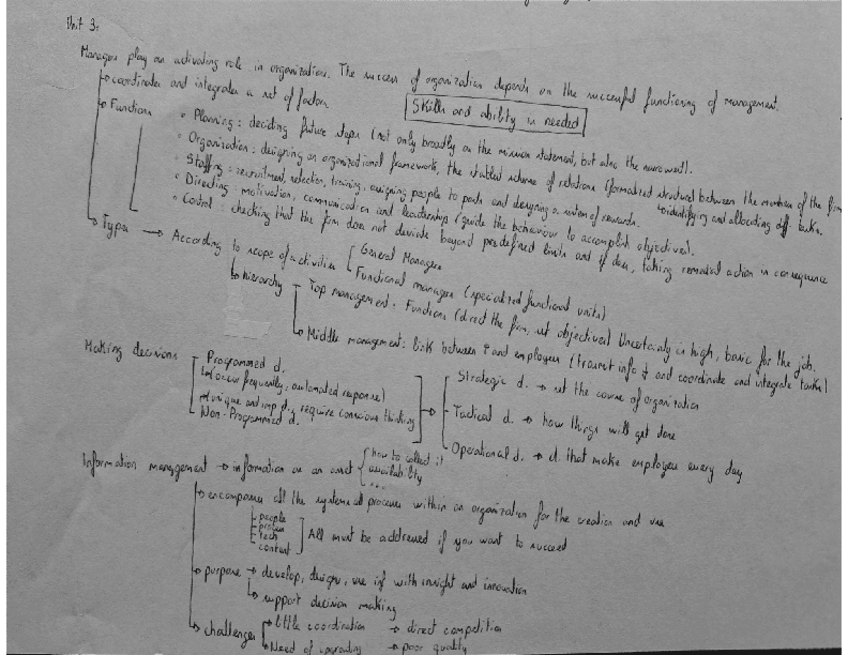 Unit 3:
Managers play an activating role in organizations. The success of organization depends on the successful functioning of management.
↳ coordinates and integrates a set of factors
Skills and ability is needed
↳ Functions
• Planning: deciding future steps (not only broadly as the mission statement, but also the narrowest).
• Organisation: designing an organizational framework, the stablish scheme of relations (formalized structure) between the members of the firm
↳ identifying and allocating diff. tasks.
• Staffing: recruitment, selection, training, assigning people to posts and designing a system of rewards.
• Directing: motivation, communication and leadership (guide the behaviour to accomplish objectives).
• Control: checking that the firm does not deviate beyond predefined limits and if does, taking remedial action in consequence
↳ Types → According to scope of activities
General Managers
Functional managers (specialized functional units)
↳ hierarchy
Top management: Functions (direct the firm, set objectives) Uncertainty is high, basic for the job.
↳ Middle management: link between ↑ and employees (transmit info ↓ and coordinate and integrate tasks)
Making decisions
Programmed d.
(occur frequently, automated response)
unique and imp d., require conscious thinking
Non-Programmed d.
→ Strategic d. → set the course of organization
Tactical d. → how things will get done
Operational d. → d. that make employees every day
Information management → information as an asset
how to collect it
availability
...
↳ encompasses all the systems and processes within an organization for the creation and use
people
process
tech
content
All must be addressed if you want to succeed
↳ purpose → develop, designs, use inf with insight and innovation
↳ support decision making
↳ challenges
→ little coordination → direct competition
↳ Need of upgrading → poor quality